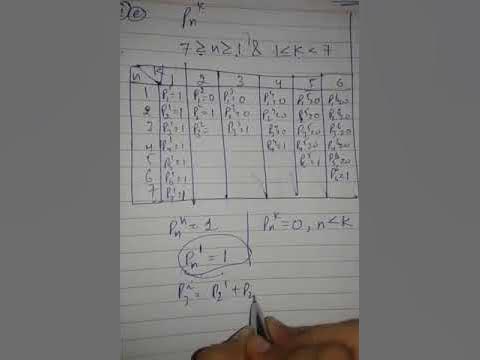 P_n^k
7 ≥ n ≥ 1 & 1 < k < 7
n k 1 2 3 4 5 6
1 P_1^1 = 1 P_1^2 = 0 P_1^3 = 0 P_1^4 = 0 P_1^5 = 0 P_1^6 = 0
2 P_2^1 = 1 P_2^2 = 1 P_2^3 = 0 P_2^4 = 0 P_2^5 = 0 P_2^6 = 0
3 P_3^1 = 1 P_3^2 = P_3^3 = 1 P_3^4 = 0 P_3^5 = 0 P_3^6 = 0
4 P_4^1 = 1 P_4^4 = 1 P_4^5 = 0 P_4^6 = 0
5 P_5^1 = 1 P_5^5 = 1 P_5^6 = 0
6 P_6^1 = 1 P_6^6 = 1
7 P_7^1 = 1
P_n^n = 1 P_n^k = 0, n < k
P_n^1 = 1
P_3^2 = P_2^1 + P_2